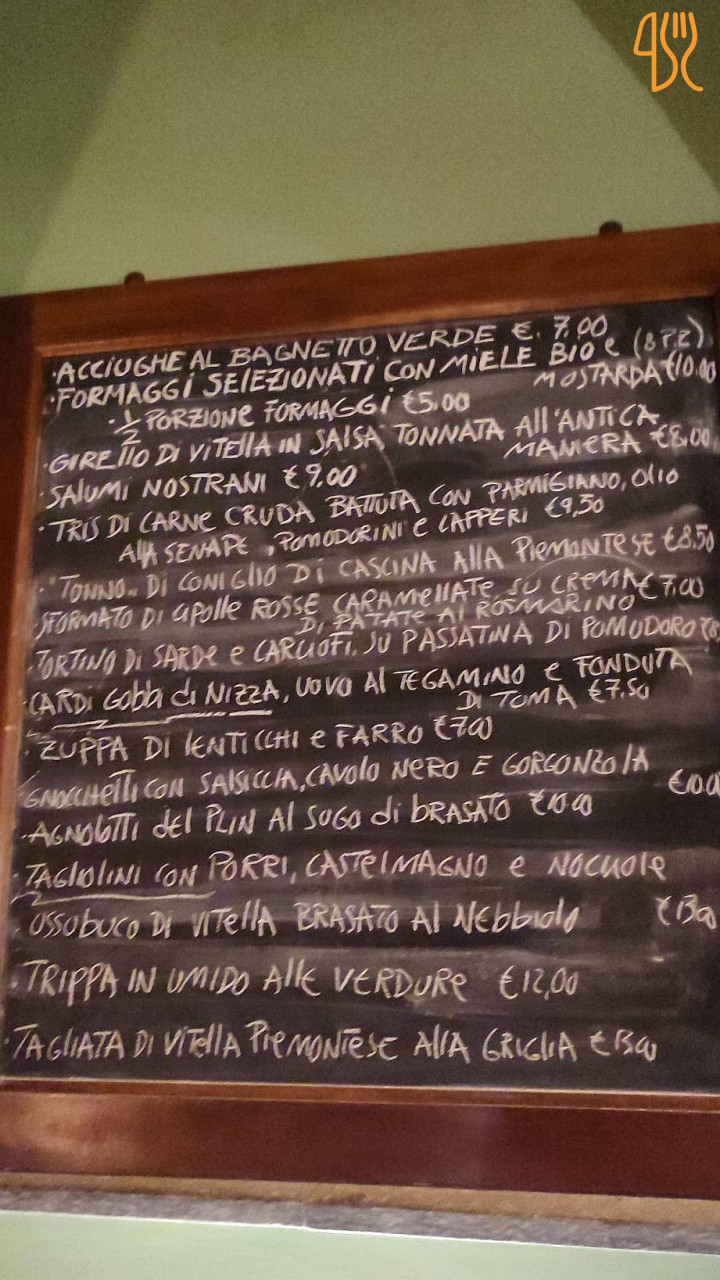 ·ACCIUGHE AL BAGNETTO VERDE €. 7,00
·FORMAGGI SELEZIONATI CON MIELE BIO e (8 PZ)
MOSTARDA €10.00
·½ PORZIONE FORMAGGI €5,00
·GIRELLO DI VITELLA IN SALSA TONNATA All'ANTICA
MANIERA €8,00
·SALUMI NOSTRANI €9.00
·TRIS DI CARNE CRUDA BATTUTA CON PARMIGIANO, OLIO
AllA SENAPE, POMODORINI e CAPPERI €9,50
·"TONNO" DI CONIGLIO DI CASCINA AllA PIEMONTESE €8.50
·SFORMATO DI CIPOLLE ROSSE CARAMELLATE SU CREMA €7,00
DI PATATE AL ROSMARINO
·TORTINO DI SARDE e CARCIOFI, SU PASSATINA DI POMODORO €8
·CARDI Gobbi di NIZZA, UOVO Al TEGAMINO e FONDUTA
DI TOMA €7.50
·ZUPPA DI lENTICCHI e FARRO €7,00
·GNOCCHETTI CON SALSICCIA, CAVOLO NERO E GORGONZOlA
€10,0
·AGNOLOTTI del PLIN Al SUGO di bRASATO €10,00
·TAGLIOLINI CON PORRI, CASTELMAGNO e NOCCIOLE
·OSSObUCO DI VITELLA BRASATO Al NEbbIOLO €13,00
·TRIPPA IN UMIDO AllE VERDURE €12,00
·TAGLIATA DI VITELLA PIEMONTESE AllA GRIGLIA €13,00